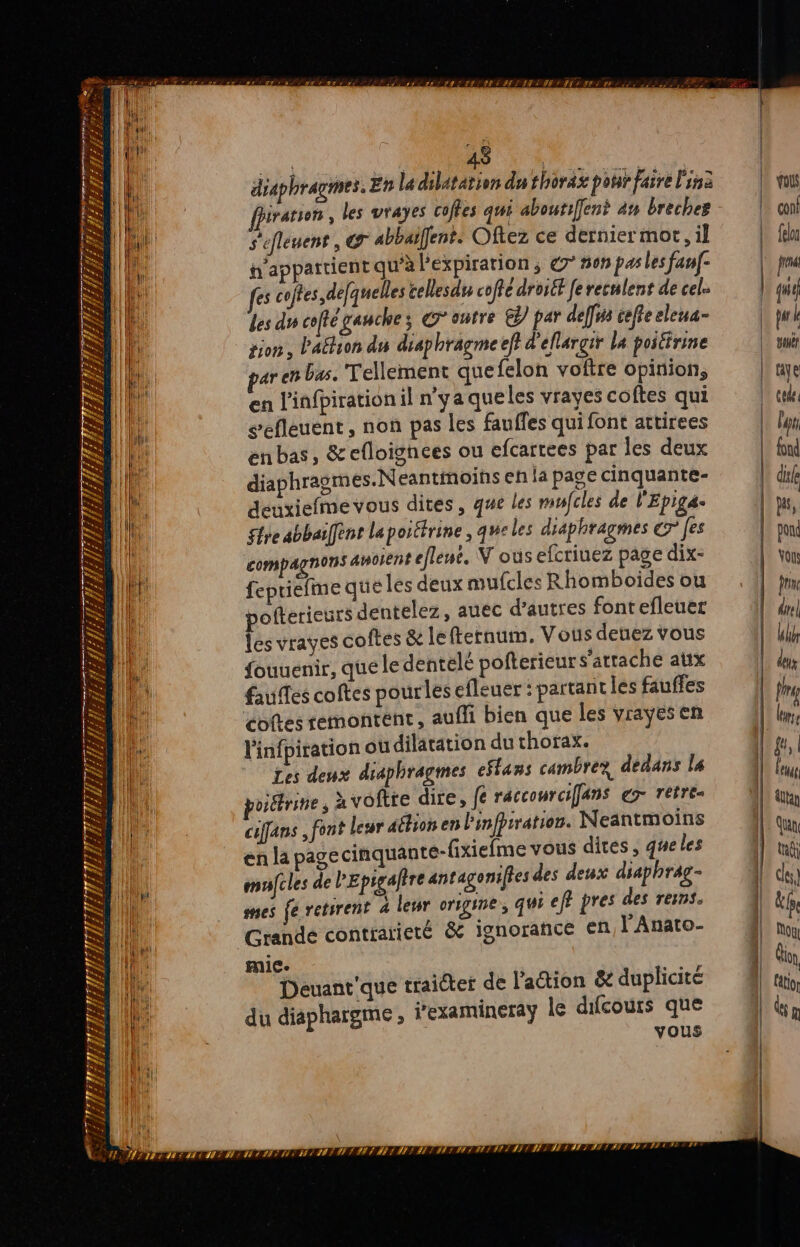 48
diaphragmes. En la dilatation du thorax pour faire l'ins
ſpiration, les vrayes coſtes qui aboutiſſent au brechet
s'eſleuent, & abbaiſſent. Oſtez ce dernier mot, il
n'appartient qu'à l'expiration; & non pas les fauſ-
ſes coſtes, deſquelles celles du coſté droict ſe reculent de cel-
les du coſté gauche; & outre & par deſſus ceſte eleua-
tion, l'action du diaphragme eſt d'eſlargir la poictrine
par en bas. Tellement que ſelon voſtre opinion,
en l'inſpiration il n'y a que les vrayes coſtes qui
s'eſleuent, non pas les fauſſes qui ſont attirees
en bas, & eſloignees ou eſcartees par les deux
diaphragmes. Neantmoins en la page cinquante-
deuxieſme vous dites, que les muſcles de l'Epiga-
ſtre abbaiſſent la poictrine, que les diaphragmes & ſes
compagnons auoient eſleué. Vous eſcriuez page dix-
ſeptieſme que les deux muſcles Rhomboides ou
poſterieurs dentelez, auec d'autres font eſleuer
les vrayes coſtes & le ſternum. Vous deuez vous
ſouuenir, que le dentelé poſterieur s'attache aux
fauſſes coſtes pour les eſleuer: partant les fauſſes
coſtes remontent, auſſi bien que les vrayes en
l'inſpiration ou dilatation du thorax.
Les deux diaphragmes eſtans cambrez dedans la
poictrine, à voſtre dire, ſe raccourciſſans & retre-
ciſſans, font leur action en l'inſpiration. Neantmoins
en la page cinquante-ſixieſme vous dites, que les
muſcles de l'Epigaſtre antagoniſtes des deux diaphrag-
mes ſe retirent à leur origine, qui eſt pres des reins.
Grande contrarieté & ignorance en l'Anato-
mie.
Deuant que traicter de l'action & duplicité
du diaphargme, i'examineray le diſcours que
vous